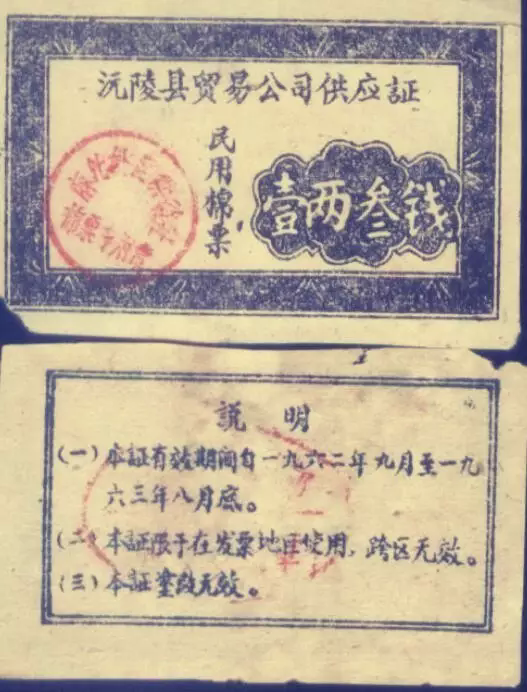 沅陵县贸易公司供应証
民用棉票
壹两叁钱
説明
(一)本証有效期间自一九六二年九月至一九
六三年八月底。
(二)本証限于在发票地区使用，跨区无效。
(三)本証塗改无效。